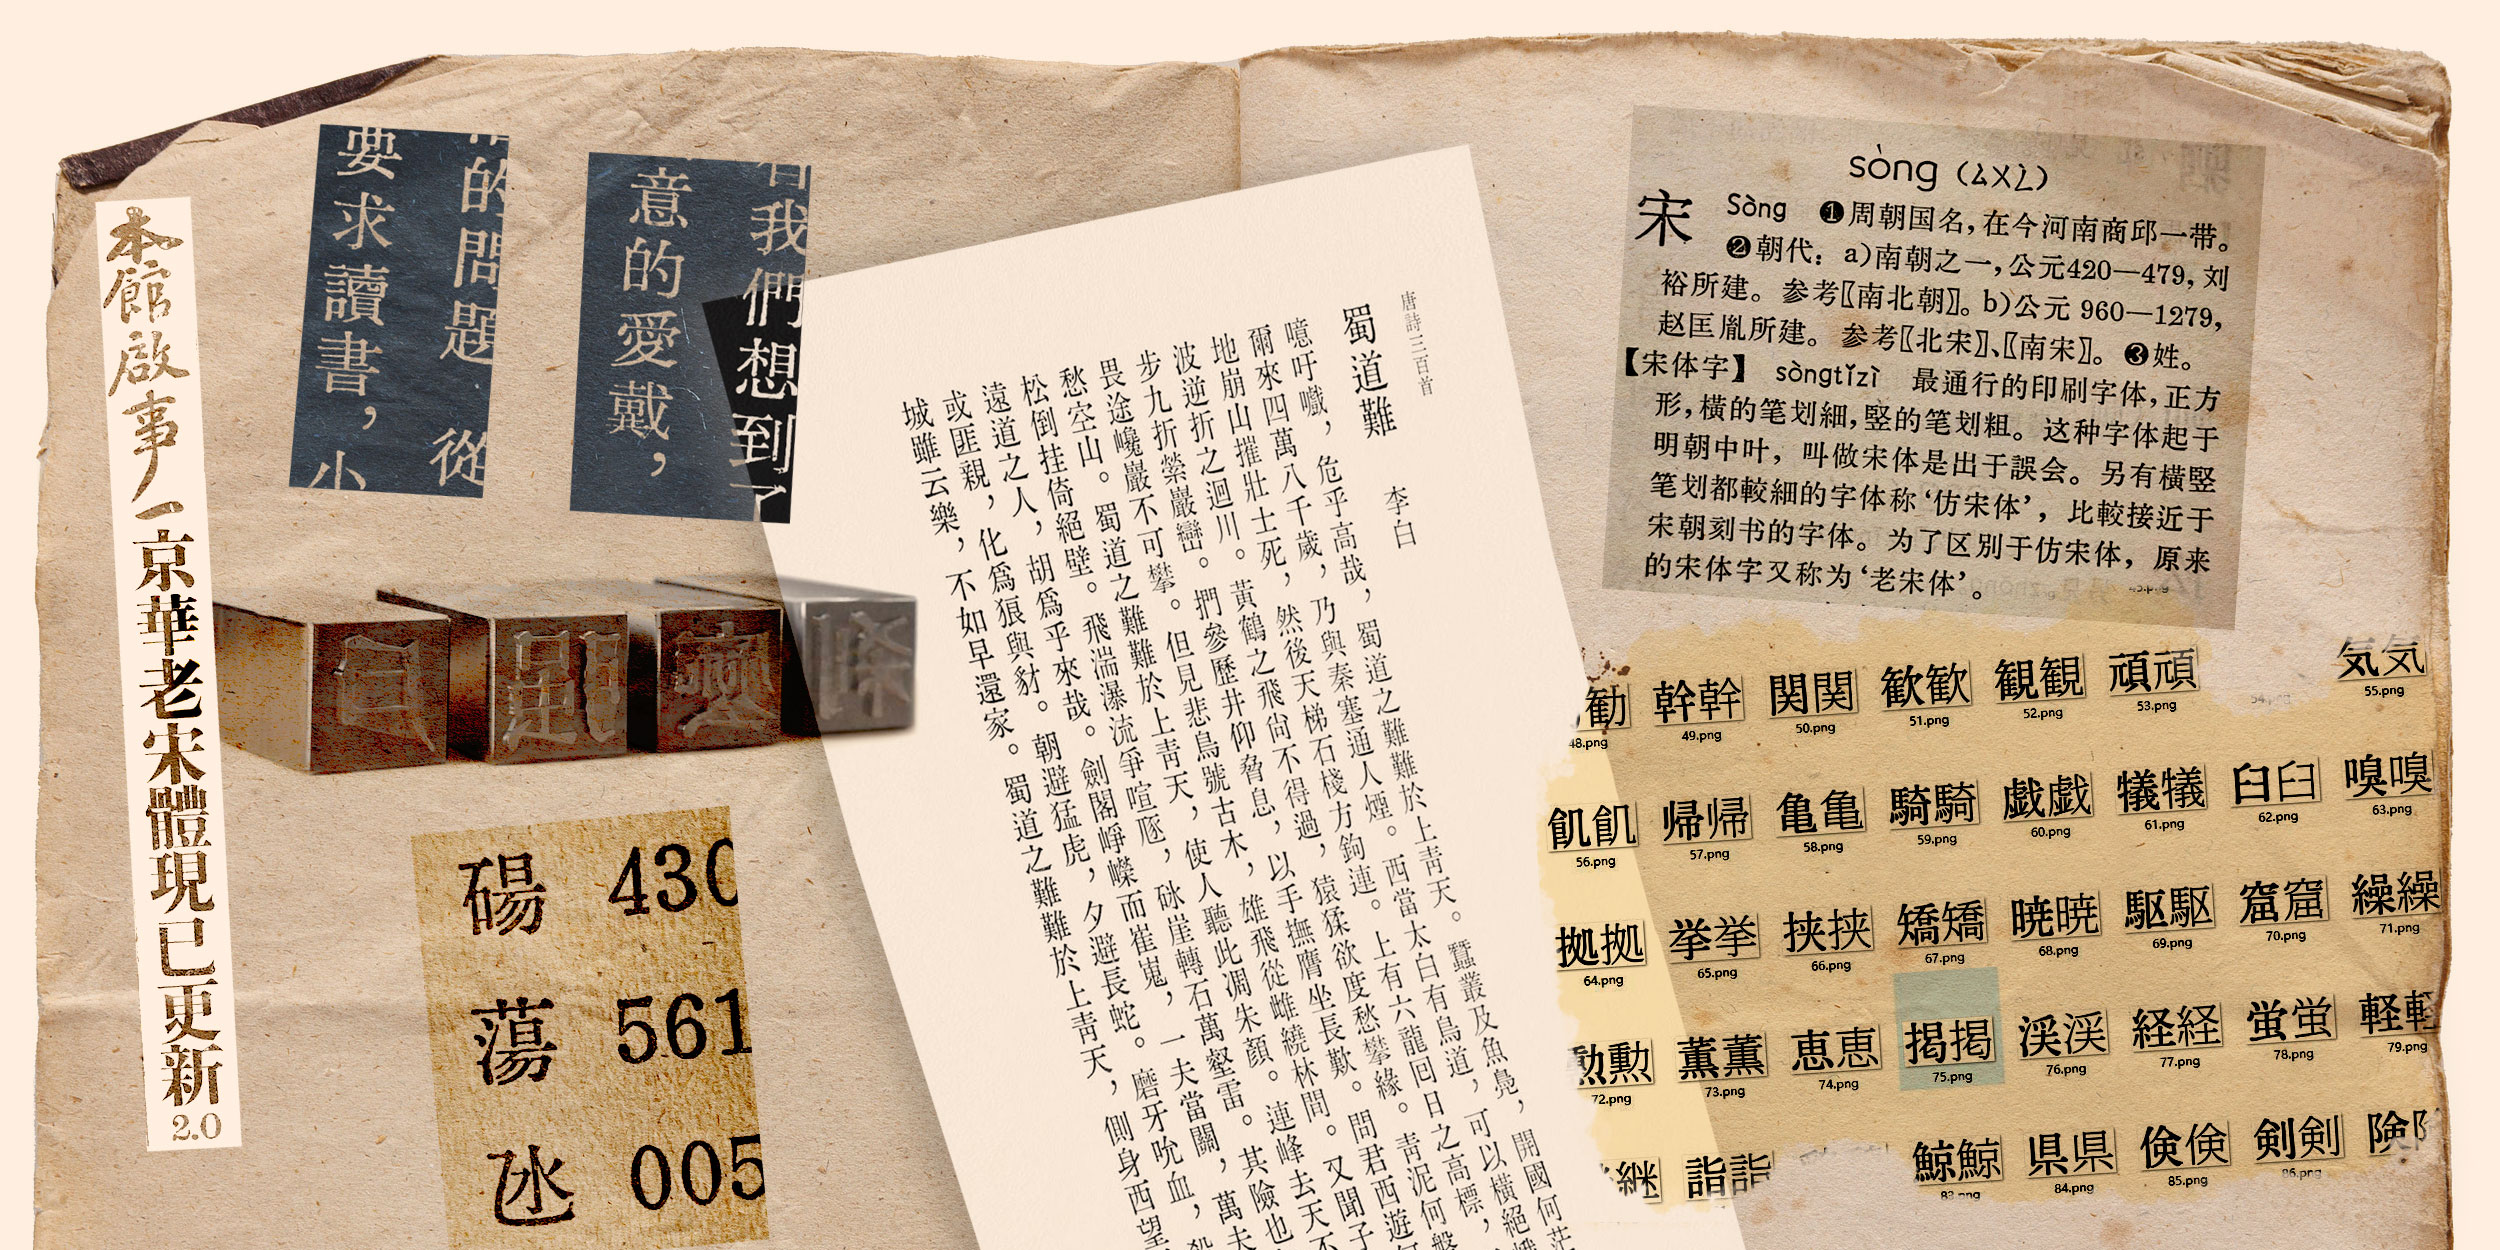 本館啟事一京華老宋體現已更新2.0
的問題 從
要求讀書,小
我們想到了
意的愛戴,
碭 430
蕩 561
氹 005
唐詩三百首
蜀道難 李白
噫吁嚱,危乎高哉,蜀道之難難於上靑天。蠶叢及魚鳧,開國何茫
爾來四萬八千歲,乃與秦塞通人煙。西當太白有鳥道,可以橫絕峨
地崩山摧壯士死,然後天梯石棧方鉤連。上有六龍囘日之高標,
波逆折之迴川。黃鶴之飛尙不得過,猿猱欲度愁攀緣。靑泥何盤
步九折縈巖巒。捫參歷井仰脅息,以手撫膺坐長歎。問君西遊何
畏途巉巖不可攀。但見悲鳥號古木,雄飛從雌繞林間。又聞子
愁空山。蜀道之難難於上靑天,使人聽此凋朱顏。連峰去天不
松倒挂倚絕壁。飛湍瀑流爭喧豗,砯崖轉石萬壑雷。其險也
遠道之人,胡爲乎來哉。劍閣崢嶸而崔嵬,一夫當關,萬夫
或匪親,化爲狼與豺。朝避猛虎,夕避長蛇。磨牙吮血,殺
城雖云樂,不如早還家。蜀道之難難於上靑天,側身西望
sòng (ㄙㄨㄥˋ)
宋 Sòng ❶周朝国名,在今河南商邱一带。
❷朝代: a)南朝之一,公元420—479,刘
裕所建。参考〖南北朝〗。b)公元 960—1279,
赵匡胤所建。参考〖北宋〗、〖南宋〗。❸姓。
【宋体字】 sòngtǐzì 最通行的印刷字体,正方
形,橫的笔划細,竪的笔划粗。这种字体起于
明朝中叶,叫做宋体是出于誤会。另有橫竪
笔划都較細的字体称‘仿宋体’,比較接近于
宋朝刻书的字体。为了区別于仿宋体,原来
的宋体字又称为‘老宋体’。
勧 幹幹 関関 歓歓 観観 頑頑 気気
48.png 49.png 50.png 51.png 52.png 53.png 55.png
飢飢 帰帰 亀亀 騎騎 戯戯 犠犠 臼臼 嗅嗅
56.png 57.png 58.png 59.png 60.png 61.png 62.png 63.png
拠拠 挙挙 挟挟 矯矯 暁暁 駆駆 窟窟 繰繰
64.png 65.png 66.png 67.png 68.png 69.png 70.png 71.png
勲勲 薫薫 恵恵 掲掲 渓渓 経経 蛍蛍 軽軽
72.png 73.png 74.png 75.png 76.png 77.png 78.png 79.png
継 詣詣 鯨鯨 県県 倹倹 剣剣 険
83.png 84.png 85.png 86.png